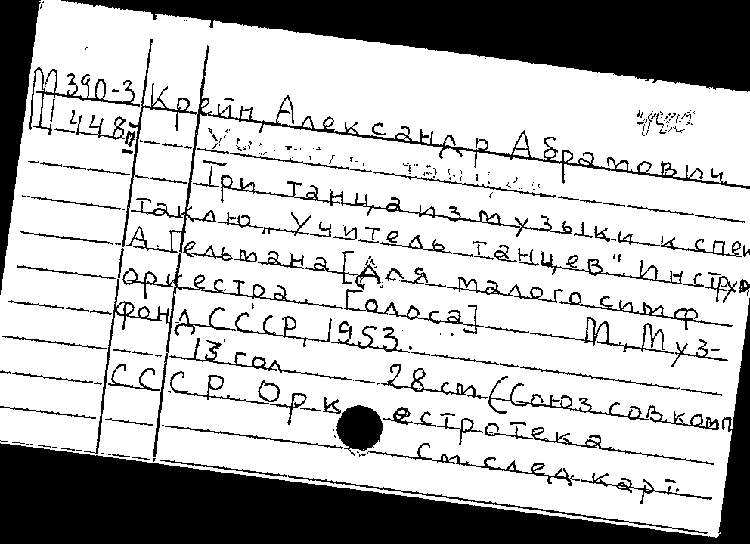 М390-3
448
II
Крейн, Александр Абрамович
Учитель танцев
Три танца из музыки к спек
таклю „Учитель танцев". Инстру
А. Гельмана [Для малого симф
оркестра. Голоса] М., Муз-
фонд СССР, 1953.
13 гол 28 см. (Союз сов. комп
СССР. Оркестротека
См. след. карт.